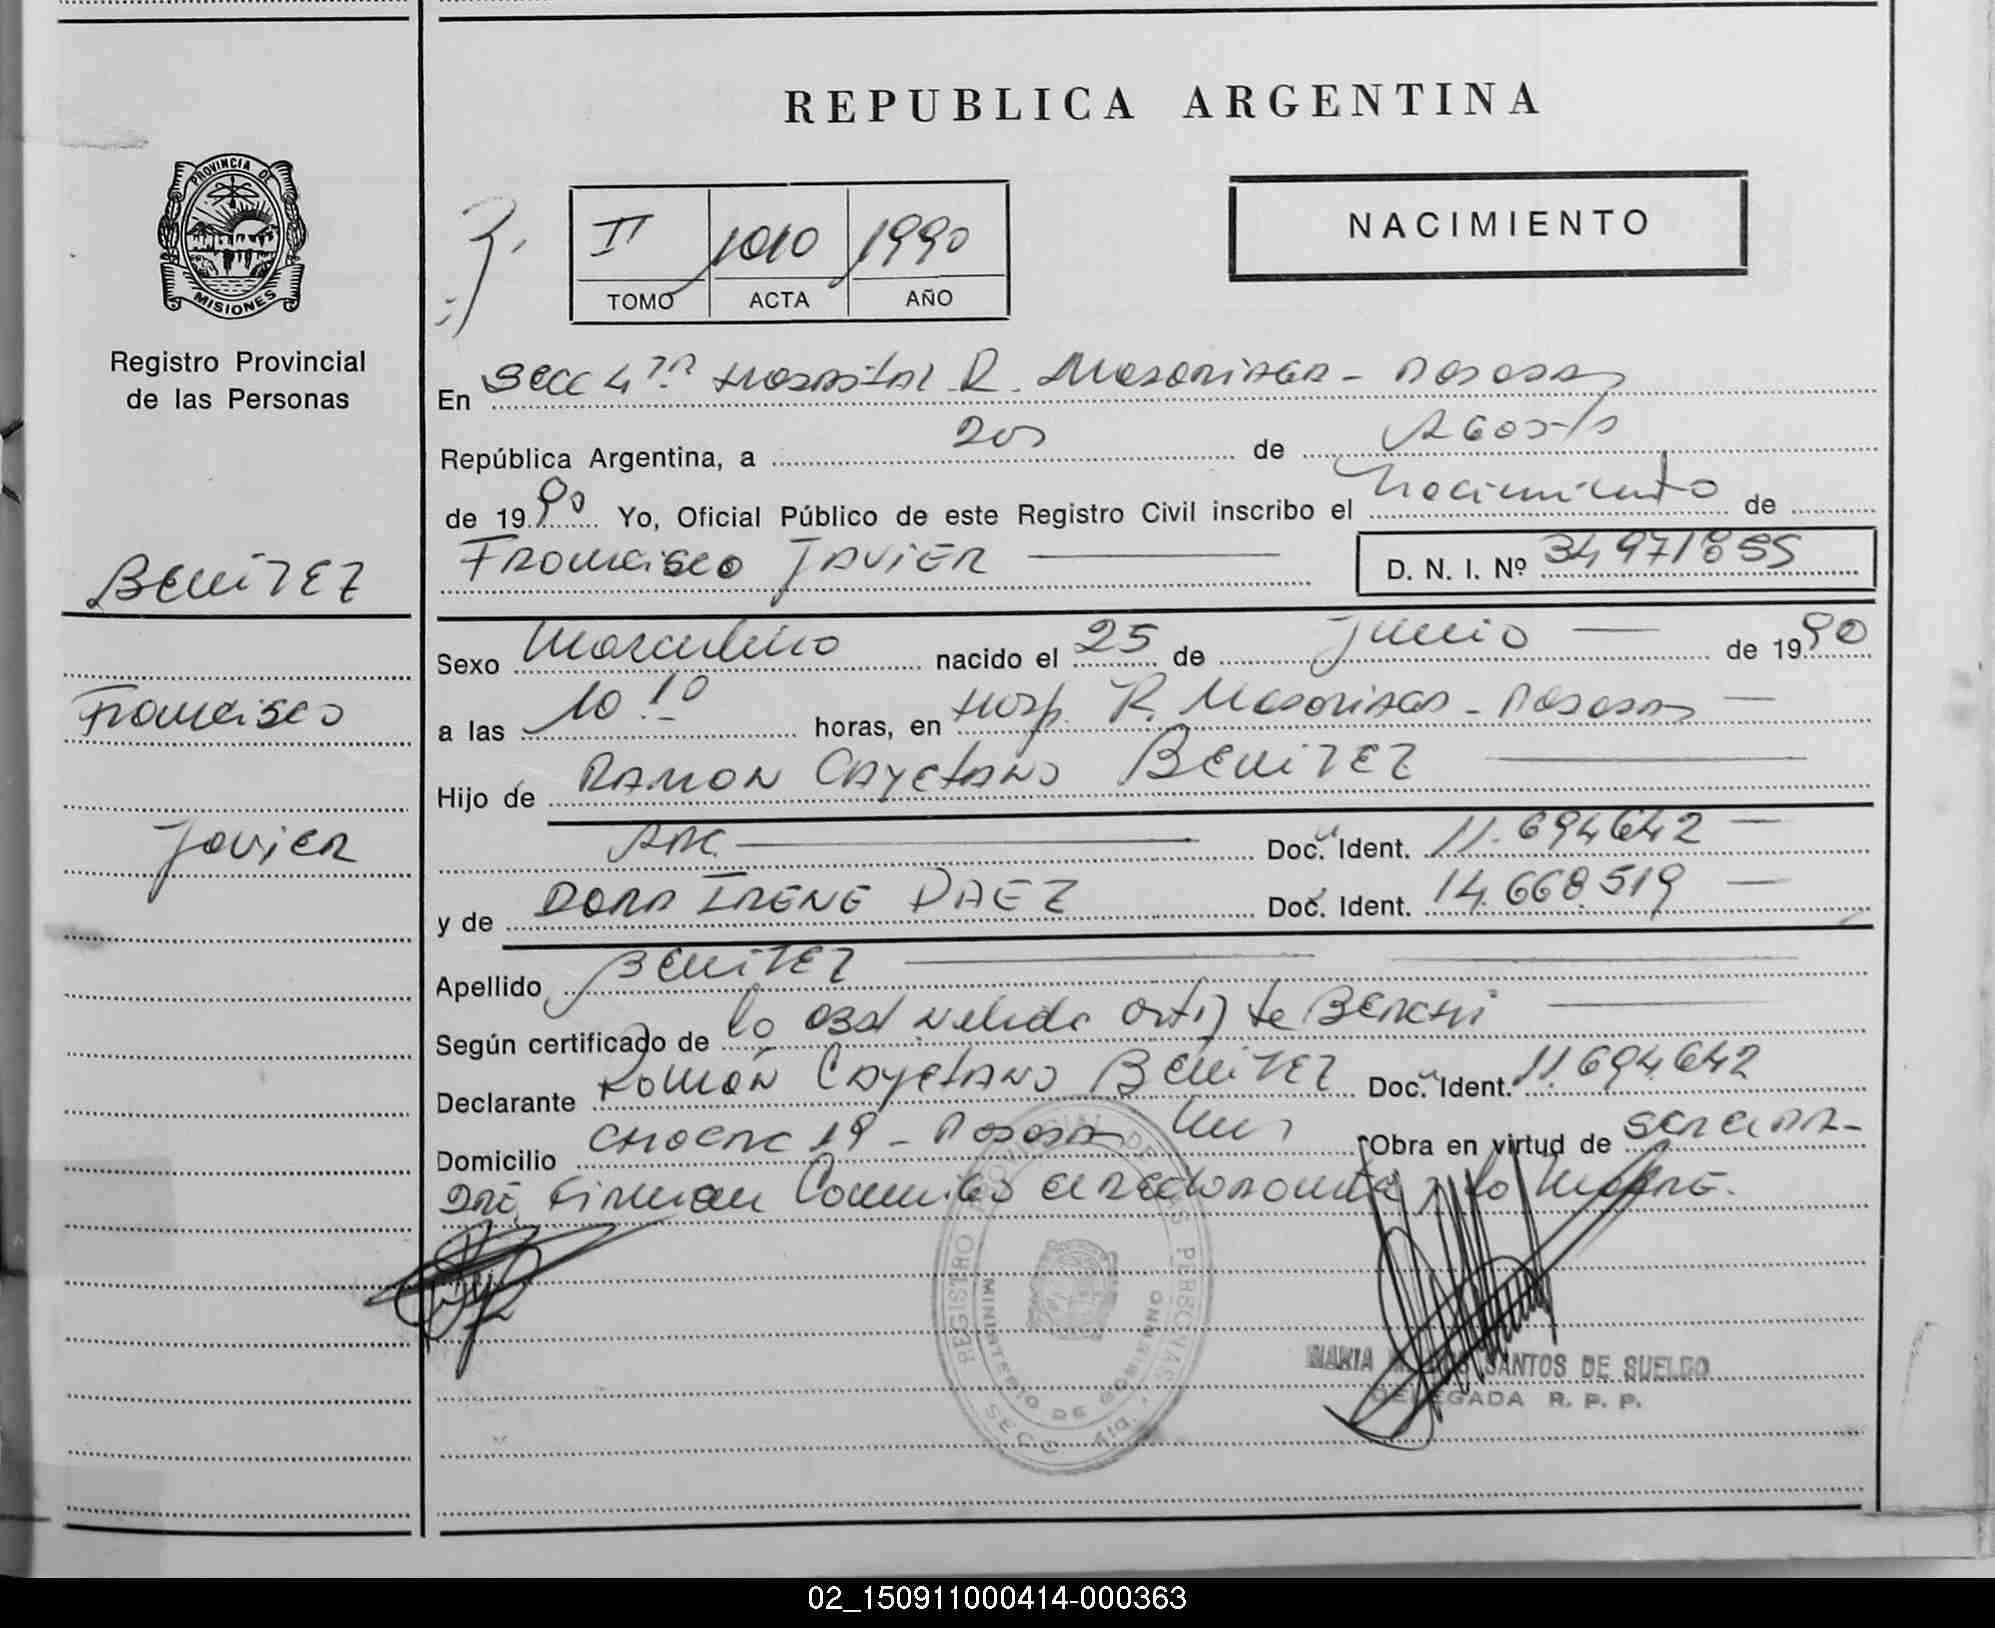 REPUBLICA ARGENTINA
PROVINCIA DE
MISIONES
Registro Provincial
de las Personas
II 1010 1990
TOMO ACTA AÑO
NACIMIENTO
En Secc 4ta Hospital R. Madariaga - Posadas
República Argentina, a dos de Agosto
de 1990 Yo, Oficial Público de este Registro Civil inscribo el nacimiento de
Francisco JAVIER D. N. I. Nº 34971855
BENITEZ
Francisco
Javier
Sexo Masculino nacido el 25 de Junio de 1990
a las 10.10 horas, en Hosp. R. Madariaga - Posadas
Hijo de RAMON CAYETANO BENITEZ
ARG. Doc. Ident. 11.694642
y de DORA IRENE PAEZ Doc. Ident. 14.668.519
Apellido BENITEZ
Según certificado de la Obst Nelida Ortiz de
Declarante Ramón CAYETANO BENITEZ Doc. Ident. 11.694.642
Domicilio 19 - Posadas Obra en virtud de ser el PA-
DRE. Firman la MADRE.
REGISTRO PROVINCIAL DE LAS PERSONAS
MINISTERIO DE GOBIERNO
SECC.
MARIA SANTOS DE SUELDO
DELEGADA R. P. P.
02_150911000414-000363